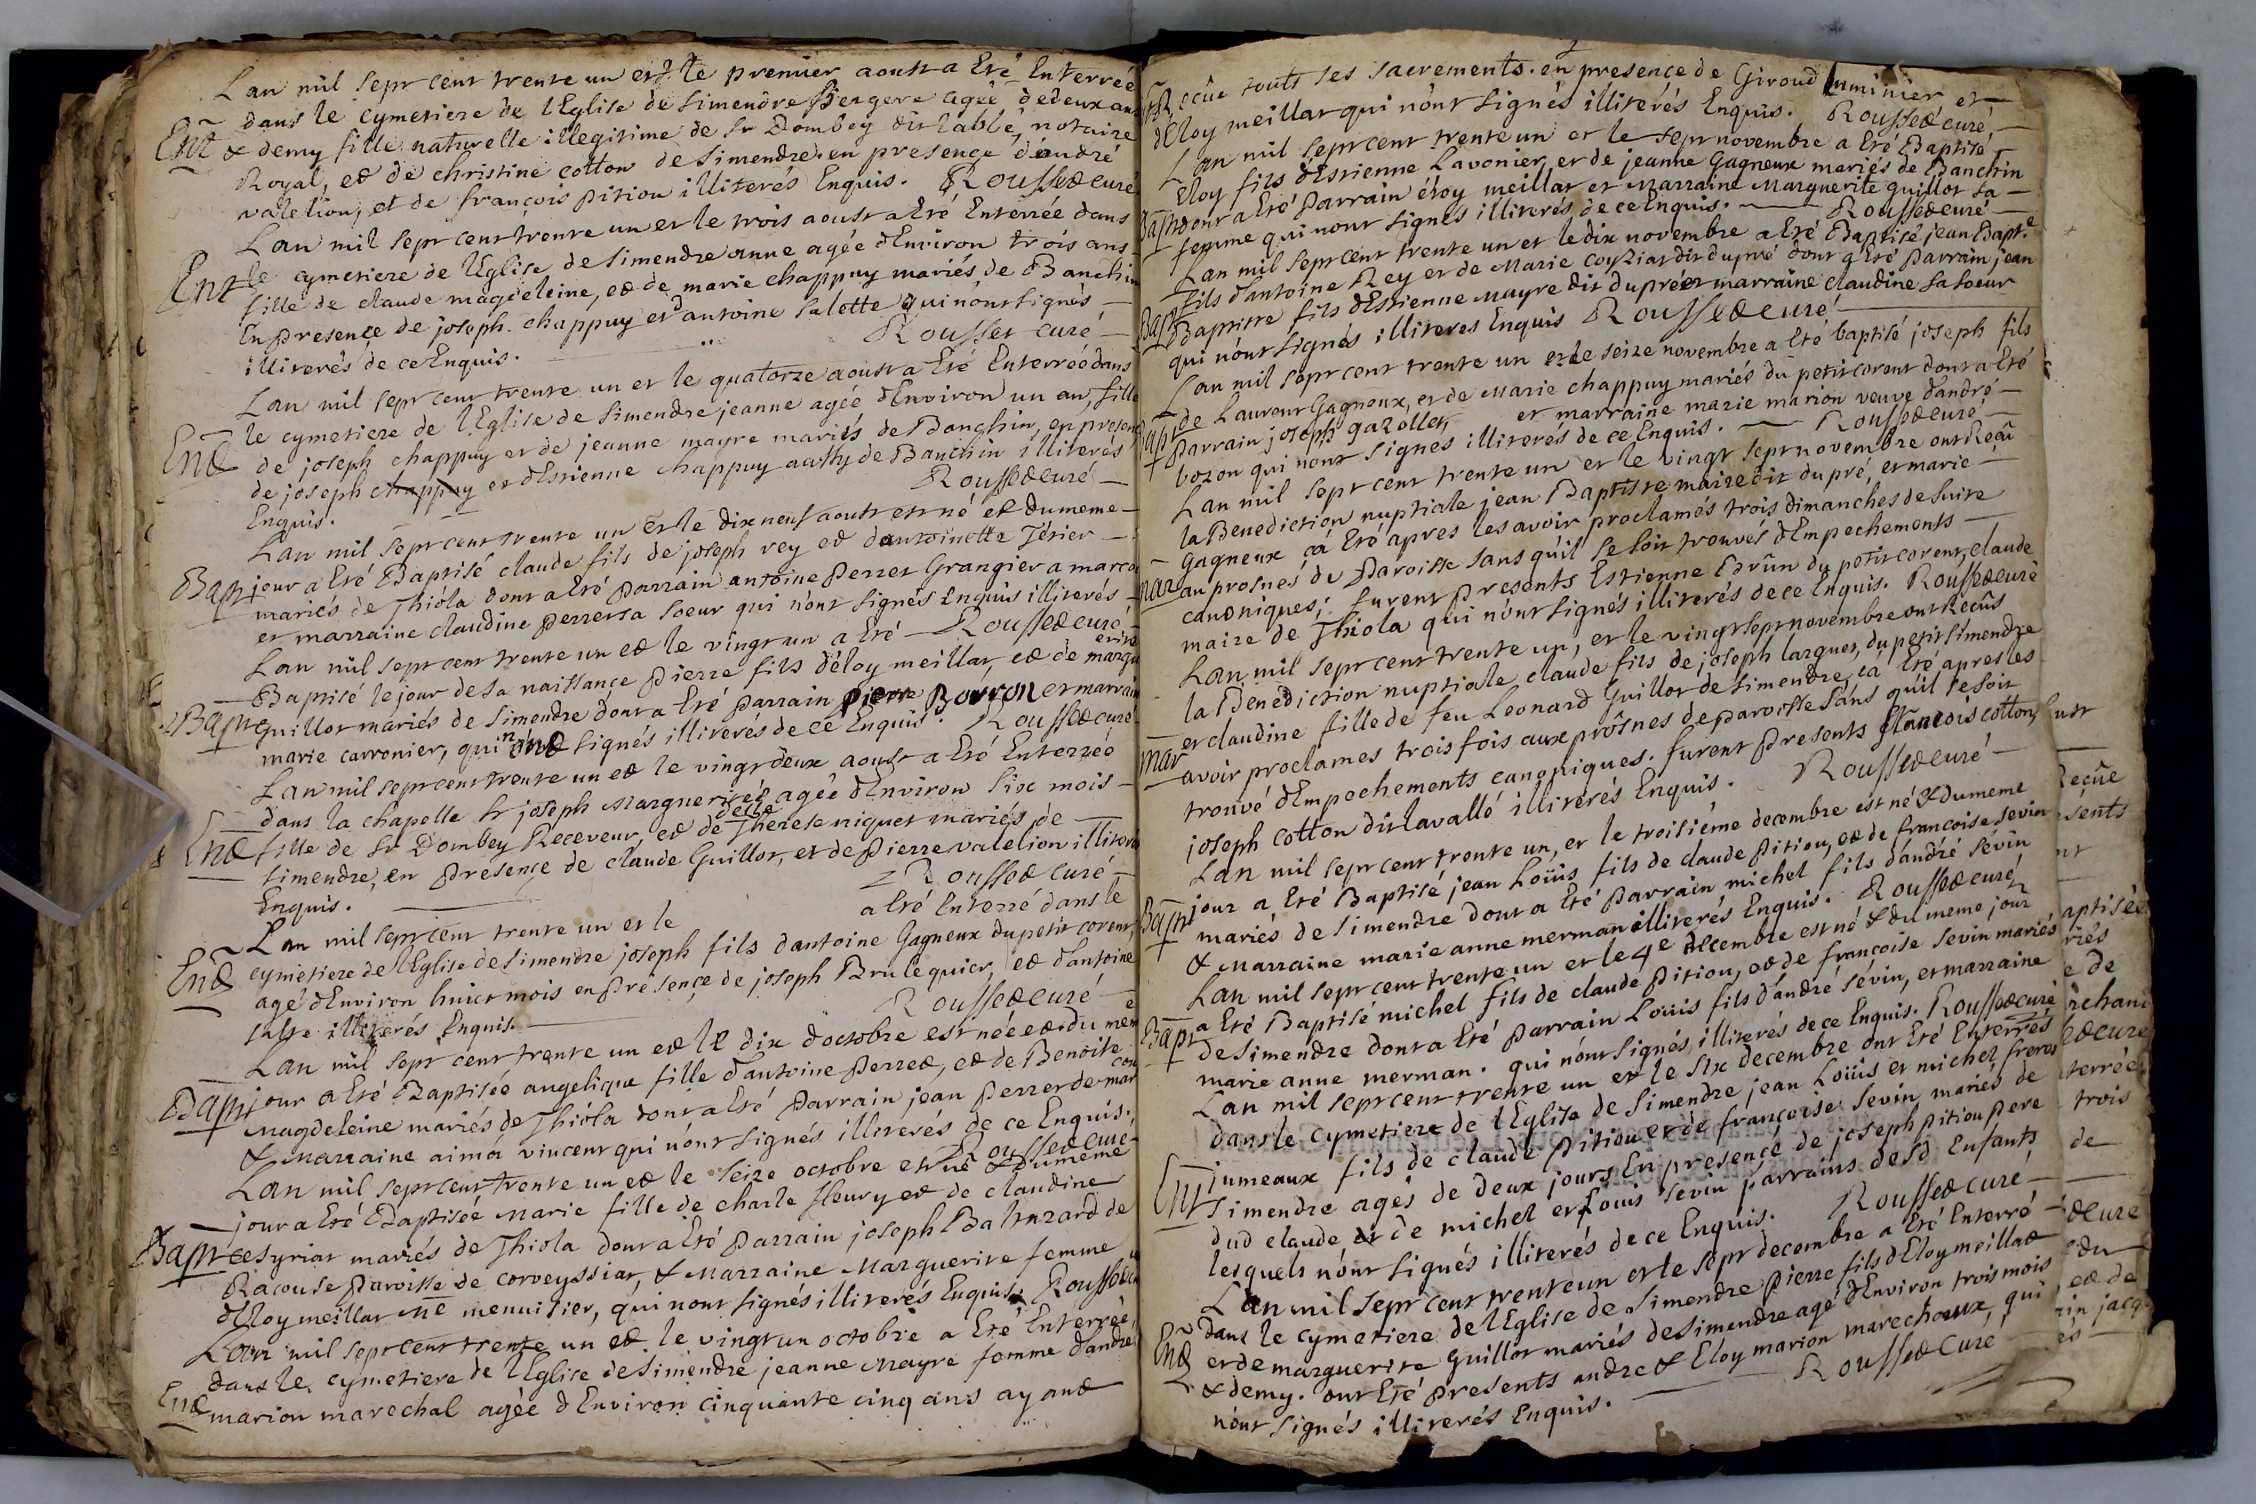 Lan mil sept cent trente un et le premier aoust a Eté Enterrée
dans le cymetiere de l'Eglise de Simendre Bergere agée de deux ans
Ent & demy fille naturelle illegitime de Sr Dombey dit lablé, notaire
Royal, et de christine cotton de Simendre. en presence d'andré
valetion, et de françois pition illiterés Enquis. Rousset curé
Lan mil sept cent trente un et le trois aoust a Eté Enterrée dans
Ent le cymetiere de l'Eglise de Simendre anne agée d'Environ trois ans
fille de claude magdeleine, et de marie chappuy mariés de Banchin
En presence de joseph chappuy et d'antoine salotte qui n'ont signés
illiterés de ce Enquis. Rousset curé
Lan mil sept cent trente un et le quatorze aoust a Eté Enterrée dans
le cymetiere de l'Eglise de Simendre jeanne agée d'Environ un an, fille
Ent de joseph chappuy et de jeanne mayre mariés de Banchin, en presence
de joseph chappuy et d'Estienne chappuy de Banchin illiterés
Enquis. Rousset curé
Lan mil sept cent trente un et le dix neuf aoust est né et du meme
Bapt jour a Eté Baptisé claude fils de joseph rey et d'antoinette Térier
mariés de Thióla dont a Eté Parrain antoine Perret Grangier a marco
et marraine claudine perret sa soeur qui n'ont signés Enquis illiterés
Lan mil sept cent trente un et le vingt un a Eté Rousset curé
Baptisé le jour de sa naissance Pierre fils d'éloy meillat, et de marguerite
Bapt Guillot mariés de Simendre dont a Eté Parrain pierre Borron et marraine
marie carronier, qui n'ont signés illiterés de ce Enquis. Rousset curé
Lan mil sept cent trente un et le vingt deux aoust a Eté Enterrée
dans la chapelle St joseph Marguerite agée d'Environ six mois
Ent fille de Sr Dombey Receveur, et de delle Therese niquet mariés de
Simendre, en presence de claude Guillot, et de Pierre valetion illiterés
Enquis. Rousset curé
Lan mil sept cent trente un et le a Eté Enterré dans le
Ent cymetiere de l'Eglise de Simendre joseph fils d'antoine Gagneux du petit corent,
agé d'Environ huict mois en presence de joseph Brulequier, et d'antoine
illiterés Enquis. Rousset curé
Lan mil sept cent trente un et le dix d'octobre est née et du meme
Bapt jour a Eté Baptisée angelique fille d'antoine Perret, et de Benoite
Magdeleine mariés de Thióla dont a Eté Parrain jean perret de marcon
& Marraine aimá vincent qui n'ont signés illiterés de ce Enquis.
Rousset curé
Lan mil sept cent trente un et le seize octobre est né & du meme
jour a Eté Baptisée Marie fille de charle fleury et de claudine
Bapt cesyriat mariés de Thiola dont a Eté Parrain joseph Balmzard de
Racouse Paroisse de corveyssiat, & Marraine Marguerite femme
d'Eloy meillat Me menuisier, qui n'ont signés illiterés Enquis. Rousset curé
Lan mil sept cent trente un et le vingt un octobre a Eté Enterrée
dans le cymetiere de l'Eglise de Simendre jeanne Mayre femme d'andré
Ent marion marechal agée d'Environ cinquante cinq ans ayant
Recûe touts ses sacrements. en presence de Giroud luminier et
d'Eloy meillat qui n'ont signés illiterés Enquis. Rousset curé
Lan mil sept cent trente un et le sept novembre a Eté Baptisé
Eloy fils d'Estienne Lavonier, et de jeanne Gagneux mariés de Banchin
Bapt dont a Eté Parrain éloy meillat et Marraine Marguerite guillot sa
femme qui n'ont signés illiterés, de ce Enquis. Rousset curé
Lan mil sept cent trente un et le dix novembre a Eté Baptisé jean Bapte
fils d'antoine Rey et de Marie coyziat dit dupré dont a Eté Parrain jean
Bapt Baptiste fils d'Estienne mayre dit dupré et marraine claudine sa soeur
qui n'ont signés illiteres Enquis Rousset curé
Lan mil sept cent trente un et le seize novembre a Eté baptisé joseph fils
de Laurent Gagneux, et de Marie chappuy mariés du petit corent dont a Eté
Bapt Parrain joseph gazollet, et marraine marie marion veuve d'andré
bozon qui n'ont signés illiterés de ce Enquis. Rousset curé
Lan mil sept cent trente un et le vingt sept novembre ont Reçû
la Benediction nuptiale jean Baptiste maire dit du pré, et marie
Gagneux ça Eté apres les avoir proclamés trois dimanches de suite
mar au prosnes de Paroisse sans qu'il se soit trouvés d'Empechements
canoniques; furent Presents Estienne Brûn du petit corent, claude
maire de Thiola qui n'ont signés illiterés de ce Enquis. Rousset curé
Lan mil sept cent trente un, et le vingt sept novembre ont Reçûs
la Benediction nuptiale claude fils de joseph larguet, du petit Simendre
et claudine fille de feu Leonard Guillot de Simendre, ça Eté apres les
mar avoir proclames trois fois aux prosnes de paroisse sans qu'il se soit
trouvé d'Empechements canoniques. furent Presents françois cotton,
joseph cotton dit lavallé illiterés Enquis. Rousset curé
Lan mil sept cent trente un, et le troisiéme decembre est né & du meme
jour a Eté Baptisé jean Loüis fils de claude Pition, et de françoise sevin
Bapt mariés de Simendre dont a Eté Parrain michel fils d'andré sévin
& Marraine marie anne merman illiterés Enquis. Rousset curé
Lan mil sept cent trente un et le 4e decembre est né & du meme jour
Bapt a Eté Baptisé michel fils de claude Pition, et de françoise sevin mariés
de Simendre dont a Eté Parrain Loüis fils d'andré sévin, et marraine
marie anne merman. qui n'ont signés, illiterés de ce Enquis. Rousset curé
Lan mil sept cent trente un et le six decembre ont Eté Enterrés
dans le cymetiere de l'Eglise de Simendre jean Loüis et michel freres
Ent jumeaux fils de claude Pition et de françoise sevin mariés de
Simendre agés de deux jours En presence de joseph pition pere
dud claude et de michel et Louis sevin parrains desd Enfants
lesquels n'ont signés illiterés de ce Enquis. Rousset curé
Lan mil sept cent trente un et le sept decembre a Eté Enterré
dans le cymetiere de l'Eglise de Simendre Pierre fils d'Eloy meillat
Ent et de marguerite Guillot mariés de Simendre agé d'Environ trois mois
& demy. ont Eté presents andre & Eloy marion marechaux, qui
n'ont signés illiterés Enquis. Rousset curé